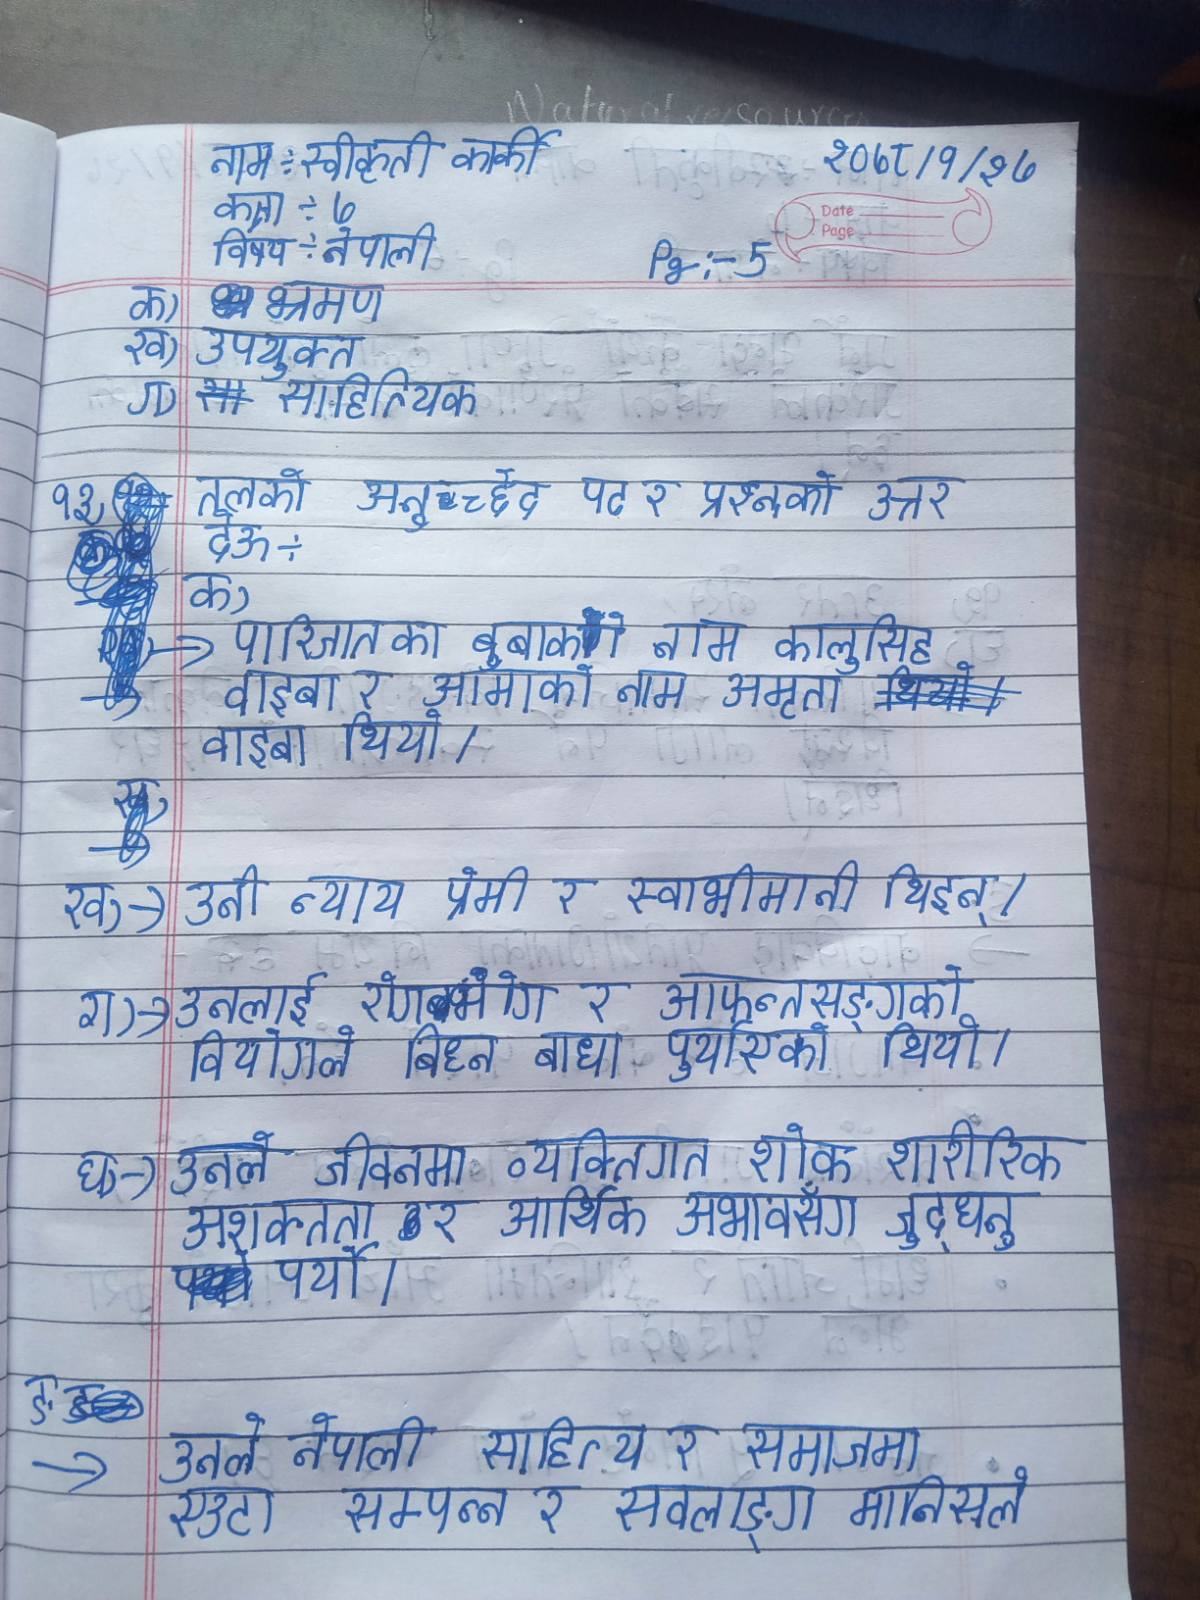 Natural resources
नाम ÷ स्वीकृती कार्की
२०७८/१/२७
कक्षा ÷ ७
Date
Page
विषय ÷ नेपाली
Pg :- 5
क) भ्रमण
ख) उपयुक्त
ग) साहित्यिक
१२, तलको अनुच्छेद पढ र प्रश्नको उत्तर
देऊ ÷
क)
→ पारिजातका बुबाको नाम कालुसिह
वाइबा र आमाको नाम अमृता
वाइबा थियो।
ख) → उनी न्याय प्रेमी र स्वाभीमानी थिइन्।
ग) → उनलाई रोगभोग र आफन्तसङ्गको
वियोगले बिघ्न बाधा पुर्याएको थियो।
घ) → उनले जीवनमा व्यक्तिगत शोक शारीरिक
अशक्तता र आर्थिक अभावसँग जुद्धनु
पर्यो।
ङ
→ उनले नेपाली साहित्य र समाजमा
एउटा सम्पन्न र सवलाङ्ग मानिसले